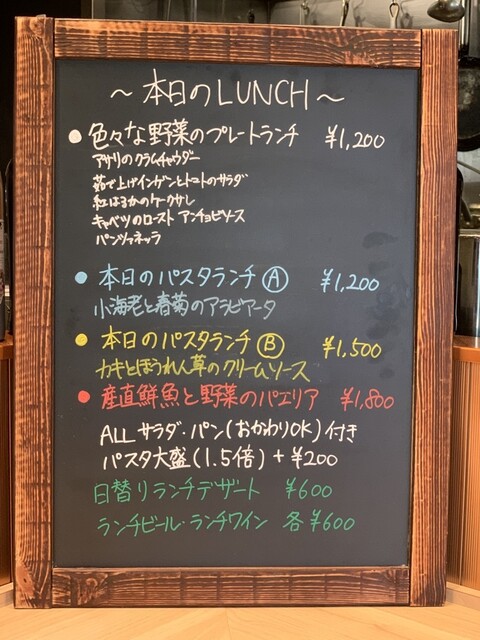 ～本日のLUNCH～
● 色々な野菜のプレートランチ ¥1,200
アサリのクラムチャウダー
茹で上げインゲンとトマトのサラダ
紅はるかのケークサレ
キャベツのロースト アンチョビソース
パンツァネッラ
● 本日のパスタランチ Ⓐ ¥1,200
小海老と春菊のアラビアータ
● 本日のパスタランチ Ⓑ ¥1,500
カキとほうれん草のクリームソース
● 産直鮮魚と野菜のパエリア ¥1,800
ALL サラダ・パン(おかわりOK)付き
パスタ大盛(1.5倍)+¥200
日替りランチデザート ¥600
ランチビール・ランチワイン 各¥600